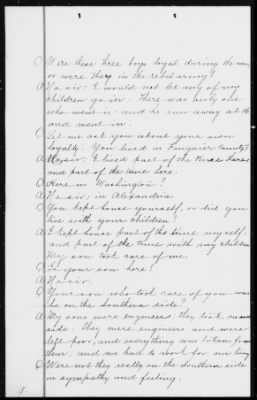 Q Were these three boys loyal during the war,
or were they in the rebel army?
A No sir; I would not let any of my
children go in. There was only one
who went in - and he run away at th
and went in.
Q Let me ask you about your own
loyalty. You lived in Fauquier County?
A No sir; I lived part of the time there
and part of the time here.
Q Here in Washington?
A No sir; in Alexandria
Q You kept house yourself, or did you
live with your children?
A I kept house part of the time myself,
and part of the time with my children
My son took care of me.
Q Is your son here?
A No sir.
Q Your son who took care of you was
he on the Southern side?
A My sons were engineers; they took no
side. They were engineers and were
left poor, and everything was taken from
them, and we had to work for our living
Q Were not they really on the Southern side
in sympathy and feeling.
5